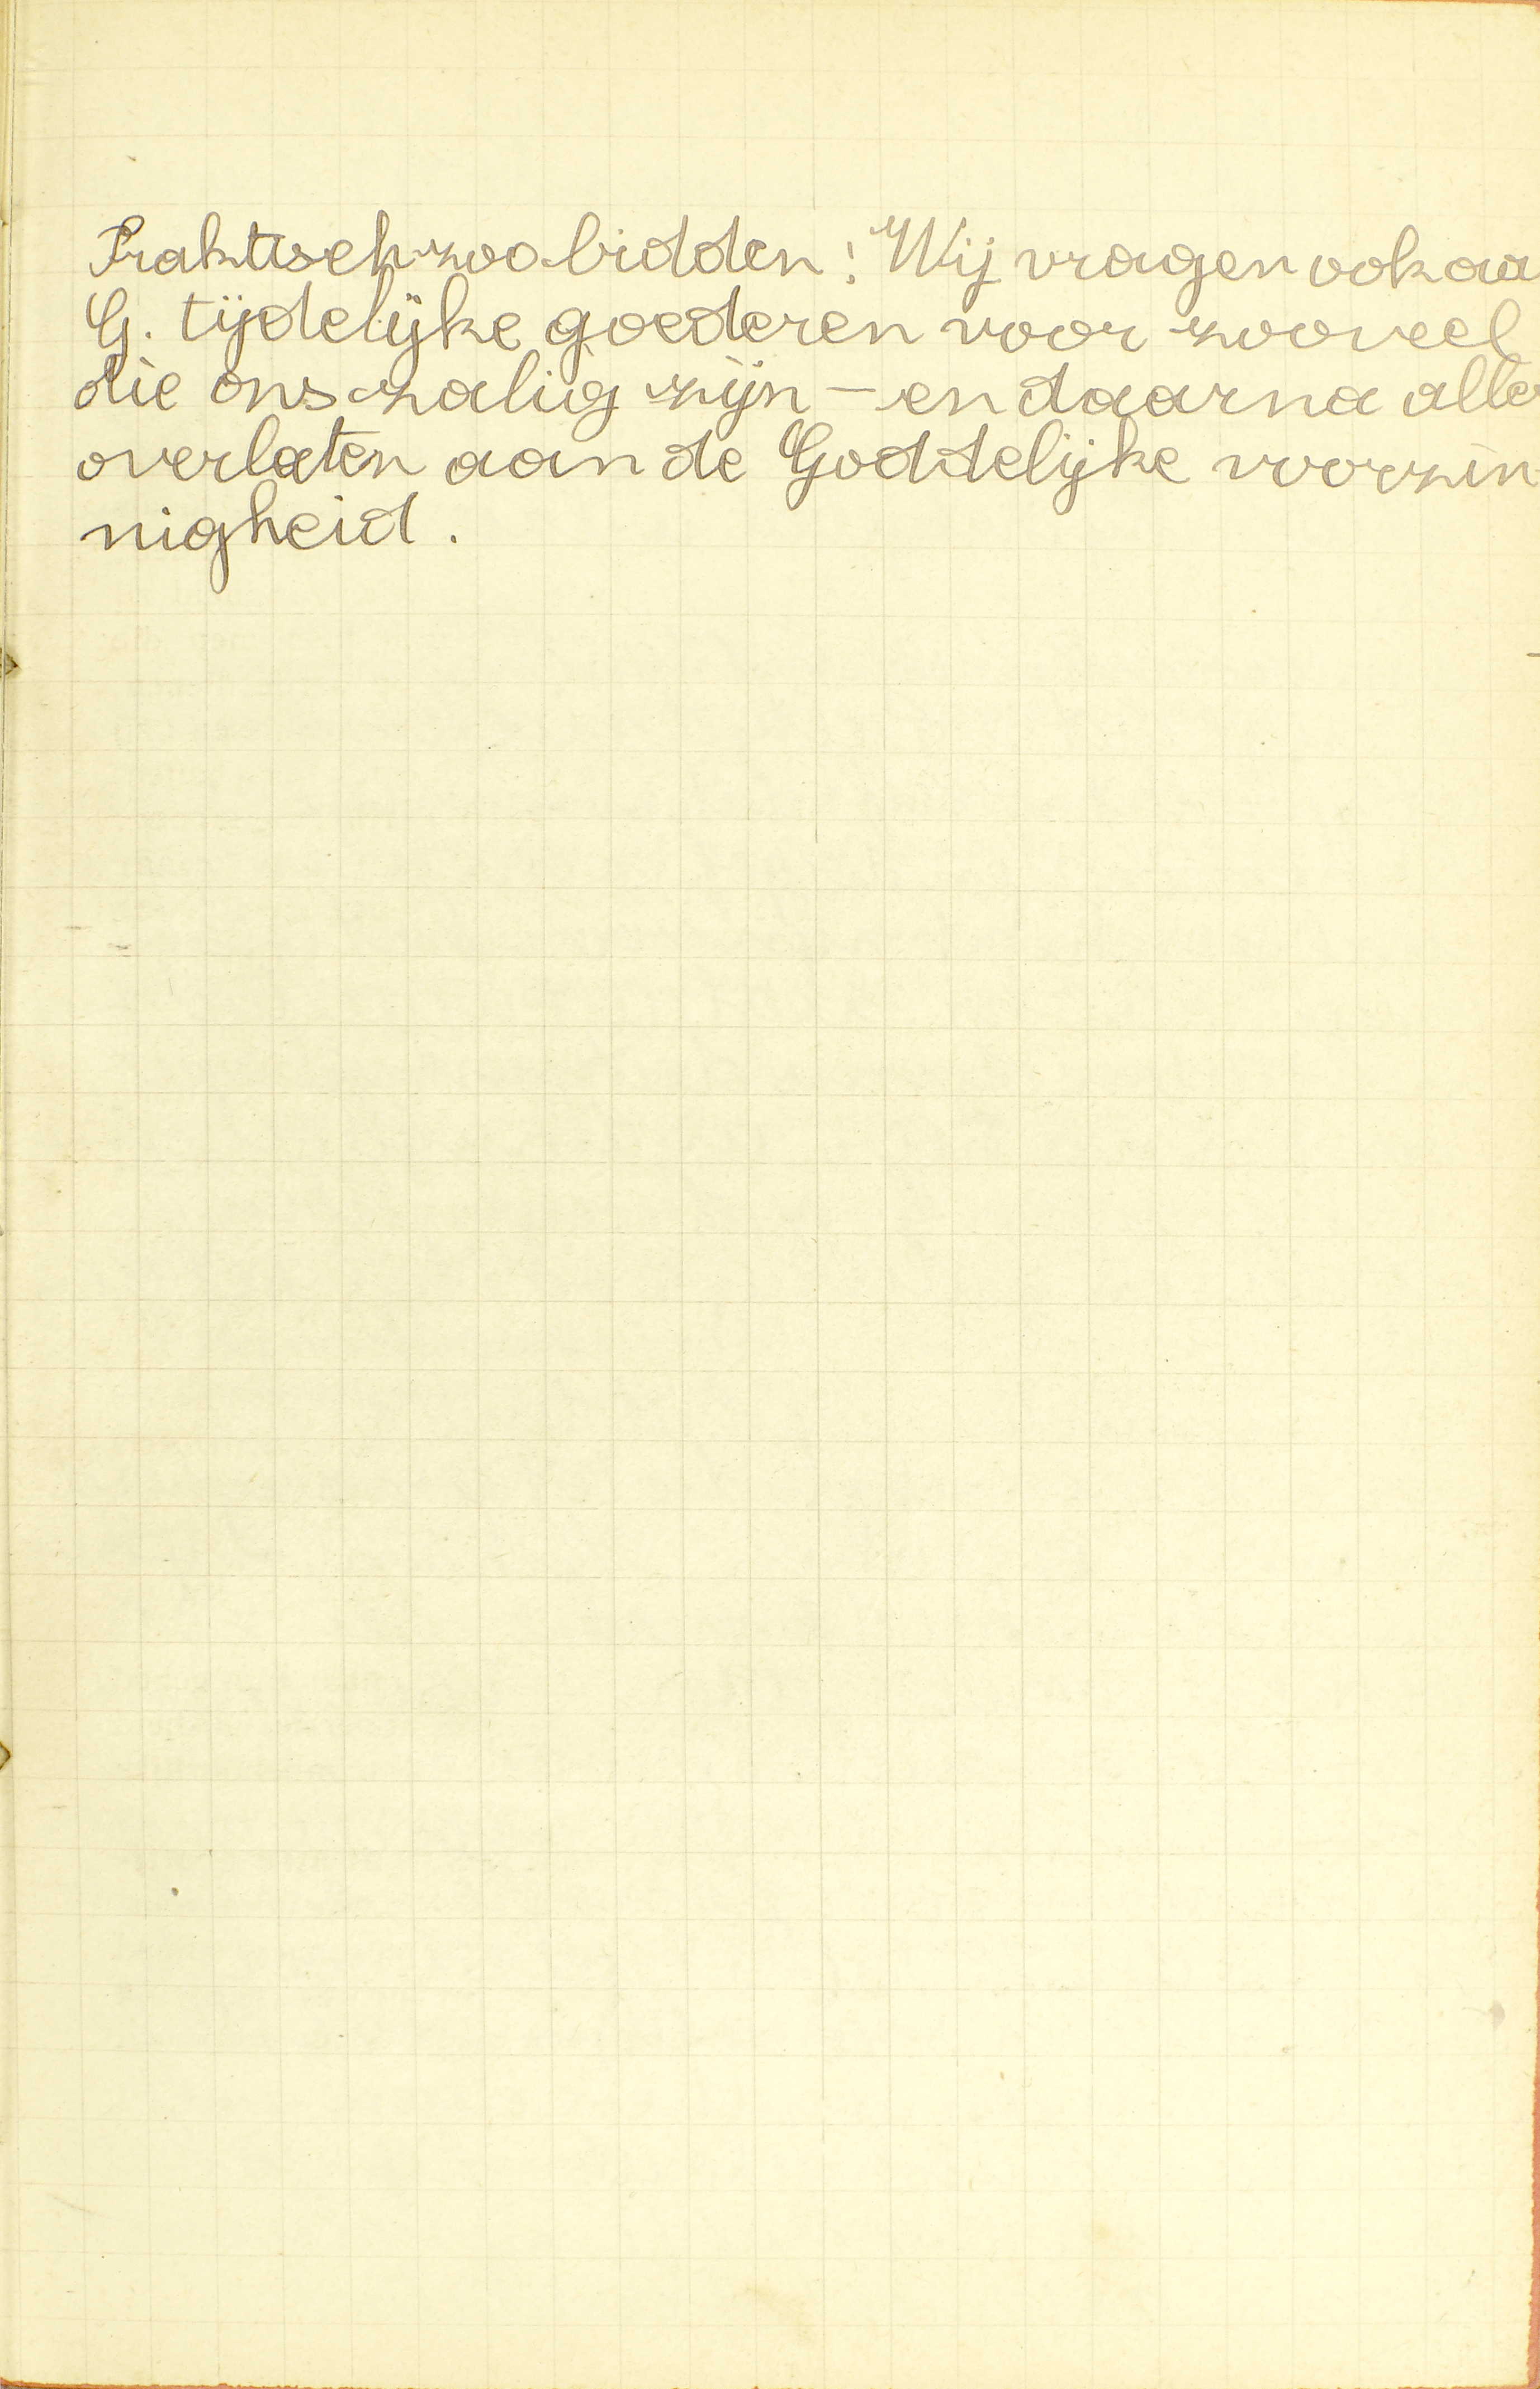 Praktisch zoo bidden! Wij vragen ook aa
G. tijdelijke goederen voor zooveel
die ons zalig zijn – en daarna alle
overlaten aan de Goddelijke voorzin
nigheid.